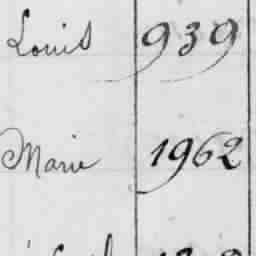 Louis 939
Marie 1962